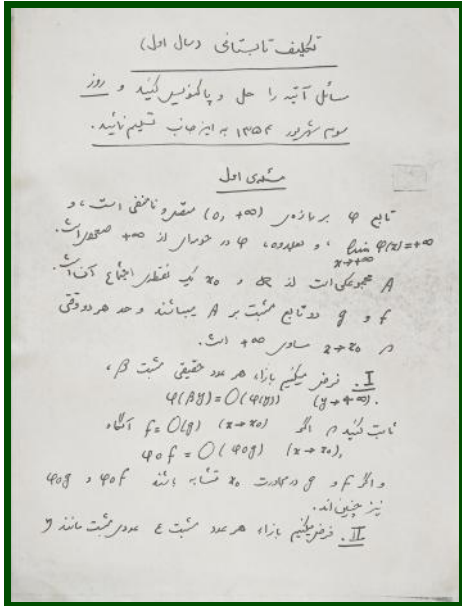 تکلیف تابستانی (سال اول)
مسائل آتیه را حل و پاکنویس کنید و روز
سوم شهریور ۱۳۵۴ به اینجانب تسلیم نمائید.
مسئله‌ی اول
تابع φ بر بازه‌ی (0, +∞) و نامنفی است، و
lim φ(x) = +∞
x→+∞
، و بعلاوه، φ در جوار‌ی از +∞ صعودی است.
A مجموعه‌ای است از و x₀ یک نقطه‌ی اجتماع آن است.
f و g دو تابع مثبت بر A میباشند و حد هر دو وقتی
x→x₀ مساوی +∞ است.
I. فرض میکنیم بازاء هر عدد حقیقی مثبت β،
φ(βy) = O(φ(y)) (y→+∞).
ثابت کنید اگر f = O(g) (x→x₀) آنگاه
φof = O(φog) (x→x₀),
و اگر f و g در مجاورت x₀ متشابه باشند φof و φog
نیز چنین‌اند.
II. فرض میکنیم بازاء هر عدد مثبت ε عددی مثبت مانند η